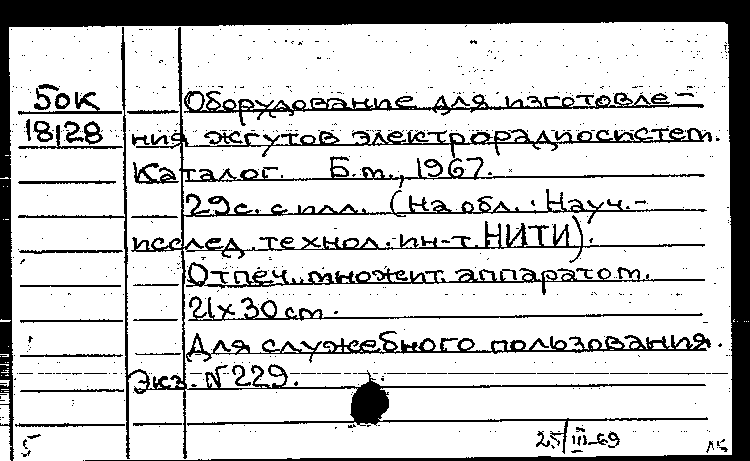 БОК
18128
Оборудование для изготовле-
ния жгутов электрорадиосистем.
Каталог. Б.м., 1967.
29с. с илл. (На обл.: Науч.-
исслед. технол. ин-т. НИТИ).
Отпеч. множит. аппаратом.
21х30 см.
Для служебного пользования.
Экз. N 229.
5
25/III-69